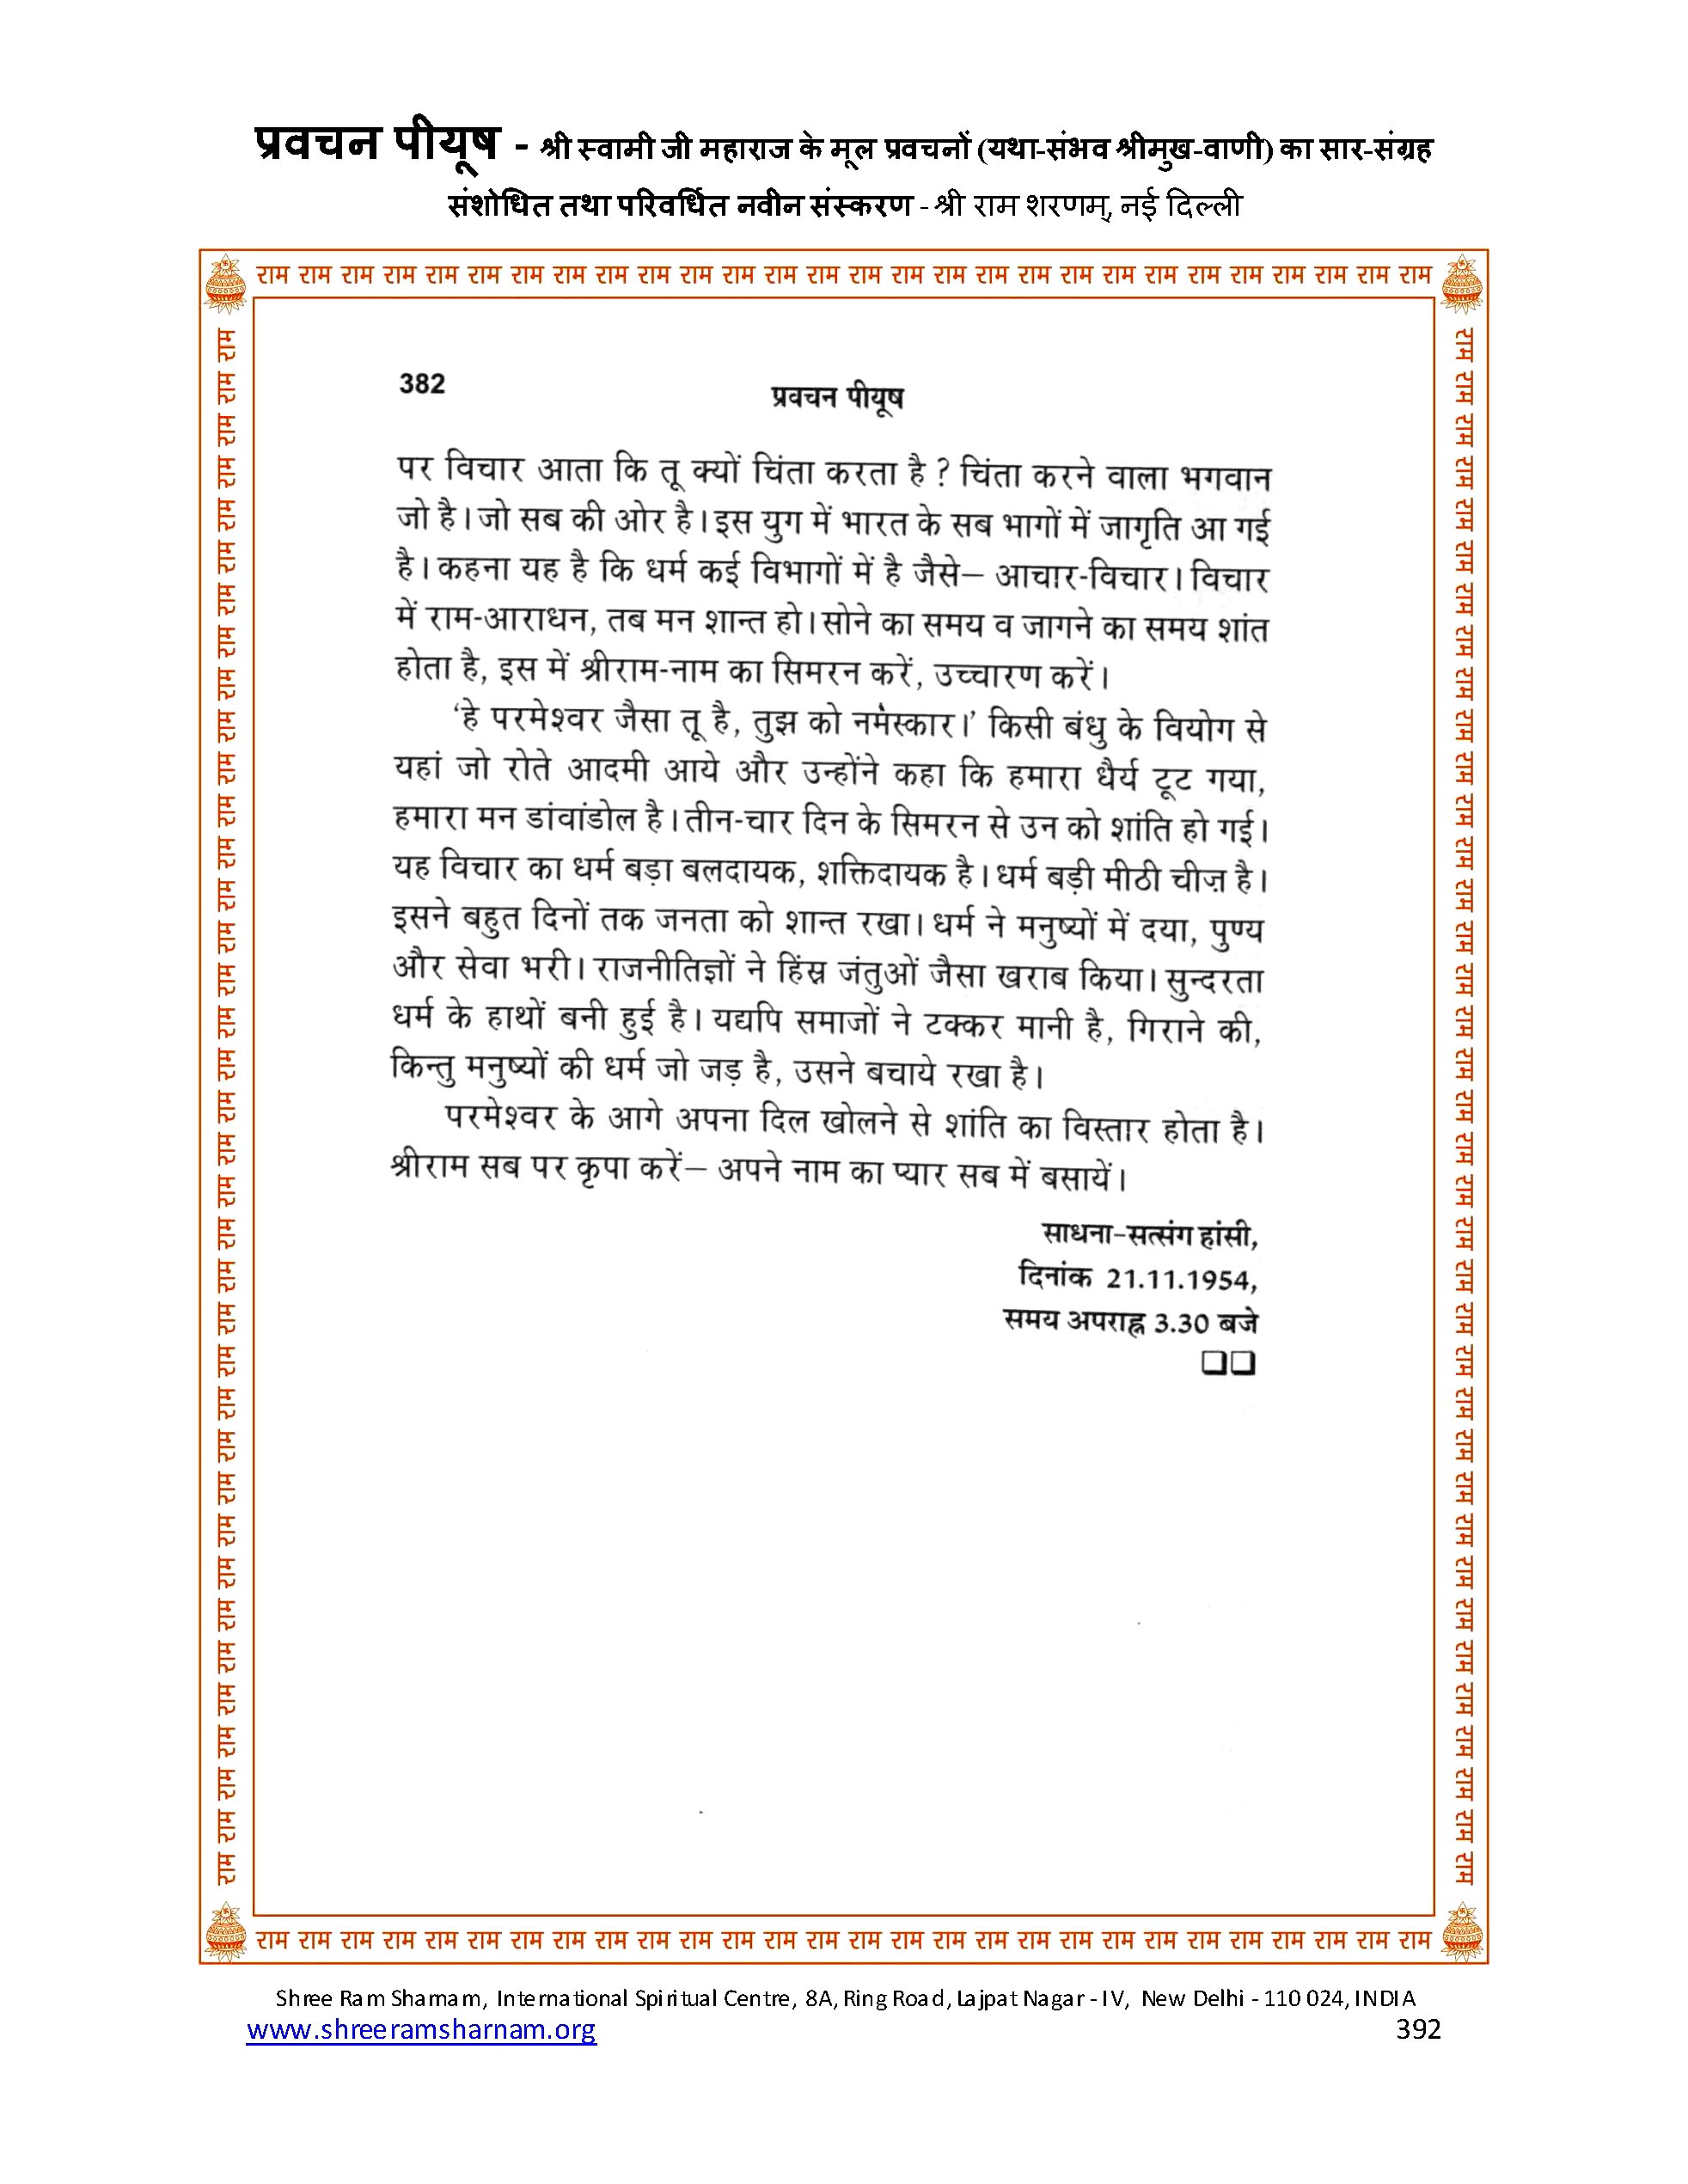 प्रवचन पीयूष - श्री स्वामी जी महाराज के मूल प्रवचनों (यथा-संभव श्रीमुख-वाणी) का सार-संग्रह
संशोधित तथा परिवर्धित नवीन संस्करण - श्री राम शरणम्, नई दिल्ली
राम राम राम राम राम राम राम राम राम राम राम राम राम राम राम राम राम राम राम राम राम राम राम राम राम राम राम राम
382
प्रवचन पीयूष
पर विचार आता कि तू क्यों चिंता करता है ? चिंता करने वाला भगवान
जो है। जो सब की ओर है। इस युग में भारत के सब भागों में जागृति आ गई
है। कहना यह है कि धर्म कई विभागों में है जैसे– आचार-विचार। विचार
में राम-आराधन, तब मन शान्त हो। सोने का समय व जागने का समय शांत
होता है, इस में श्रीराम-नाम का सिमरन करें, उच्चारण करें।
‘हे परमेश्वर जैसा तू है, तुझ को नमंस्कार।’ किसी बंधु के वियोग से
यहां जो रोते आदमी आये और उन्होंने कहा कि हमारा धैर्य टूट गया,
हमारा मन डांवांडोल है। तीन-चार दिन के सिमरन से उन को शांति हो गई।
यह विचार का धर्म बड़ा बलदायक, शक्तिदायक है। धर्म बड़ी मीठी चीज़ है।
इसने बहुत दिनों तक जनता को शान्त रखा। धर्म ने मनुष्यों में दया, पुण्य
और सेवा भरी। राजनीतिज्ञों ने हिंस्र जंतुओं जैसा खराब किया। सुन्दरता
धर्म के हाथों बनी हुई है। यद्यपि समाजों ने टक्कर मानी है, गिराने की,
किन्तु मनुष्यों की धर्म जो जड़ है, उसने बचाये रखा है।
परमेश्वर के आगे अपना दिल खोलने से शांति का विस्तार होता है।
श्रीराम सब पर कृपा करें– अपने नाम का प्यार सब में बसायें।
साधना-सत्संग हांसी,
दिनांक 21.11.1954,
समय अपराह्न 3.30 बजे
राम राम राम राम राम राम राम राम राम राम राम राम राम राम राम राम राम राम राम राम राम राम राम राम राम राम राम राम राम राम राम राम राम राम राम राम राम
राम राम राम राम राम राम राम राम राम राम राम राम राम राम राम राम राम राम राम राम राम राम राम राम राम राम राम राम राम राम राम राम राम राम राम राम राम
राम राम राम राम राम राम राम राम राम राम राम राम राम राम राम राम राम राम राम राम राम राम राम राम राम राम राम राम
Shree Ram Sharnam, International Spiritual Centre, 8A, Ring Road, Lajpat Nagar - IV, New Delhi - 110 024, INDIA
www.shreeramsharnam.org
392